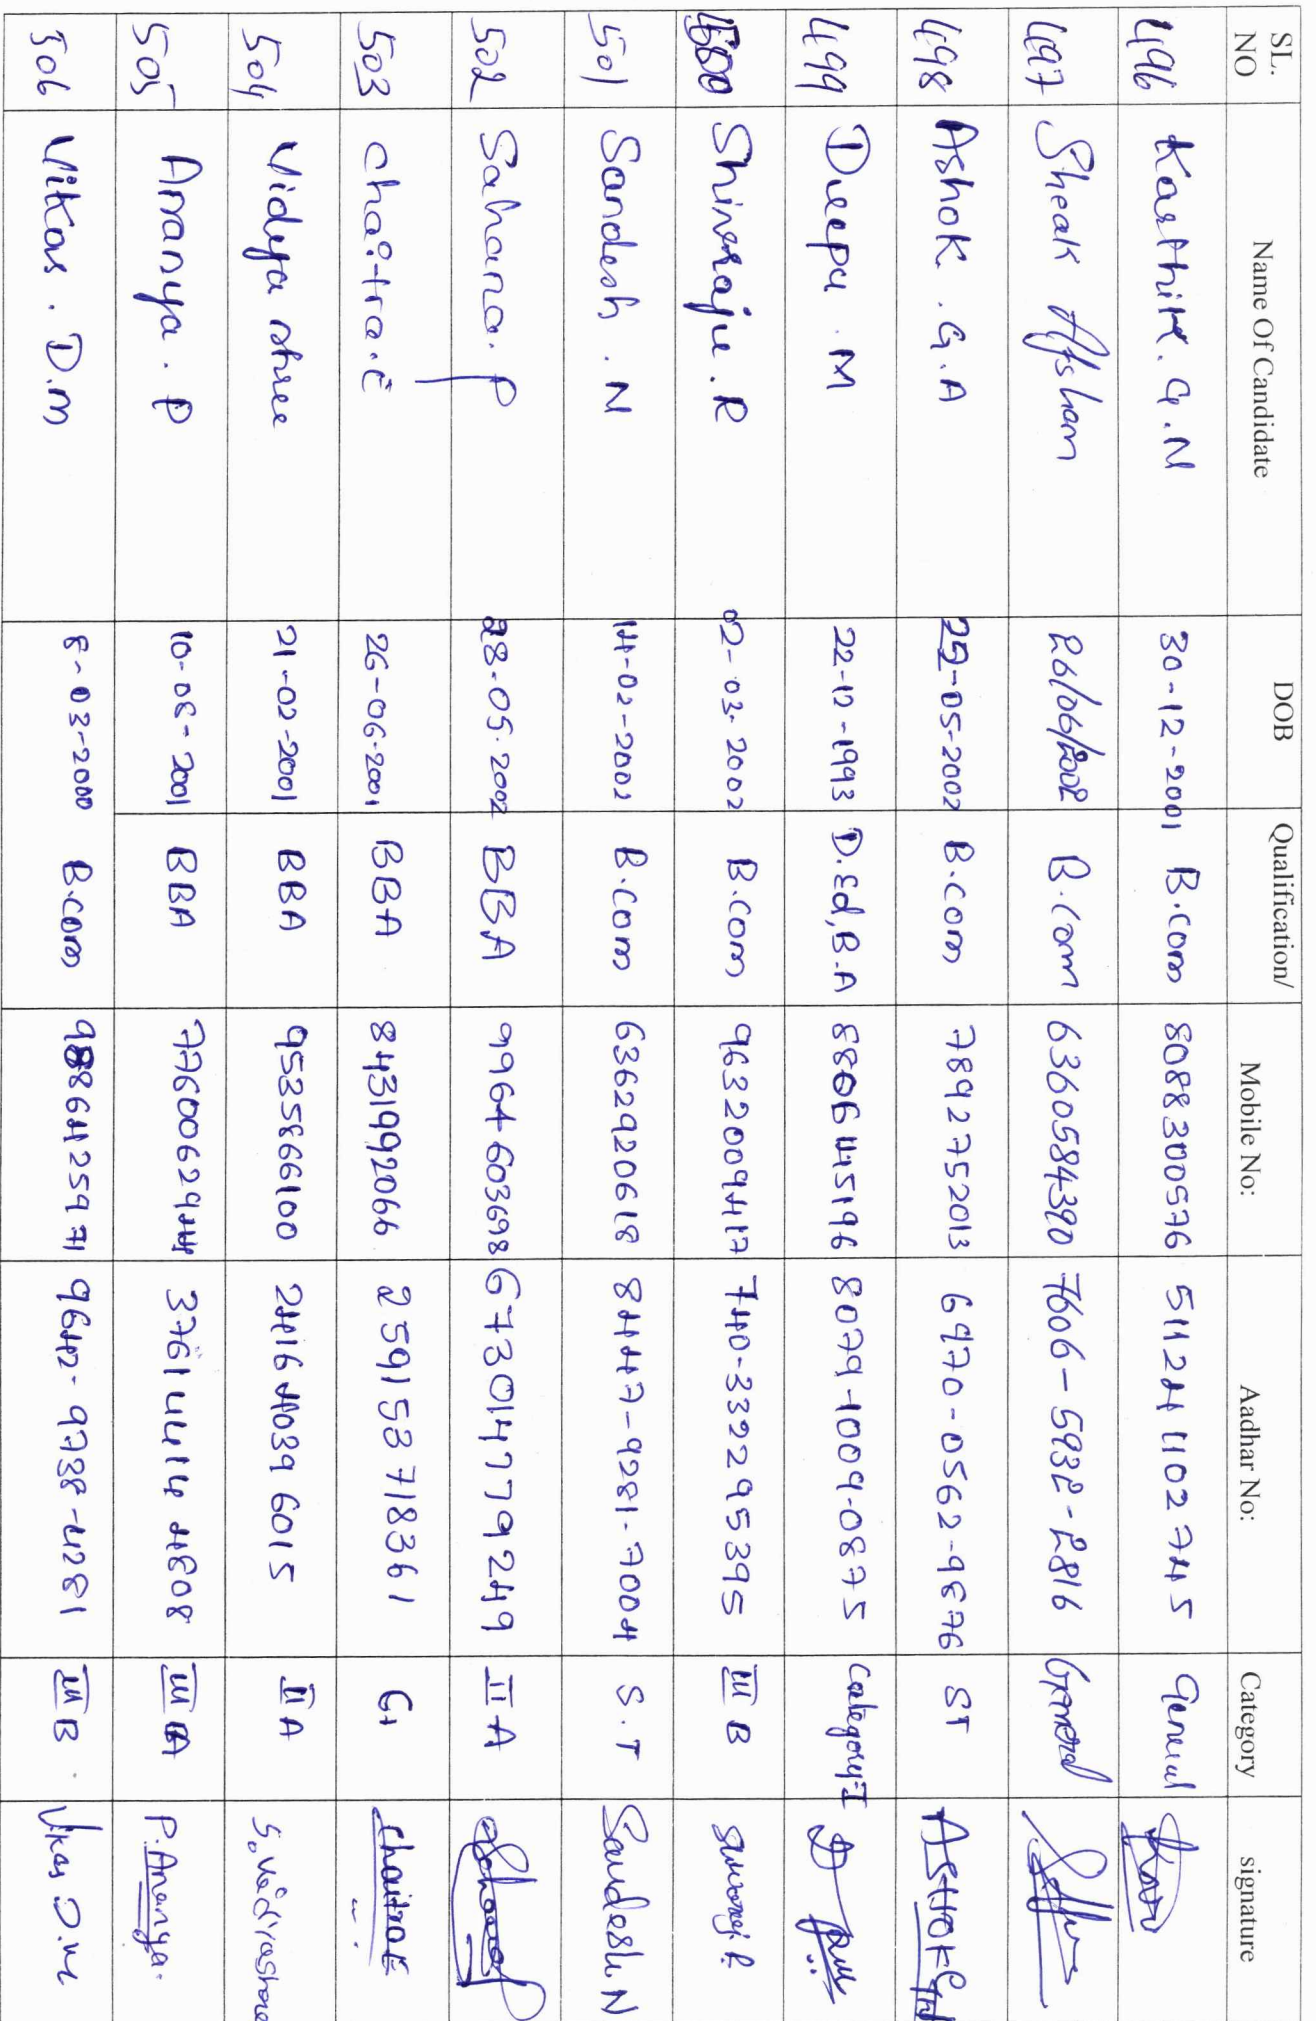 SL. NO Name Of Candidate DOB Qualification/ Mobile No: Aadhar No: Category signature
496 Karthik. G. N 30-12-2001 B.com 8088300576 5112 4110 2745 General
497 Sheak Afsham 26/06/2002 B.com 6360584390 7606-5932-2816 General
498 Ashok . G. A 25-05-2002 B.com 7892752013 6970-0562-9876 ST ASHOK
499 Deepa . M 22-12-1993 D.Ed, B.A 8806445196 8079-1009-0875 Category-I
500 Shivaraju . R 02-03-2002 B.com 9632009417 740-332295395 III B
501 Sandesh . N 14-02-2002 B.com 6362920618 8447-9281-7004 S.T Sandesh. N
502 Sahana. P 28.05.2002 BBA 9964603698 673014779249 II A
503 chaitra.c 26-06-2001 BBA 8431992066 2591 5371 8361 Chaitra
504 Vidya shree 21-02-2001 BBA 9535866100 2416 4039 6015 II A
505 Ananya. P 10-08-2001 BBA 7760062944 3761 4414 4808 III A P. Ananya.
506 Vikas . D.m 8-03-2000 B.com 9886425971 9642-9738-4281 III B . Vikas D.M